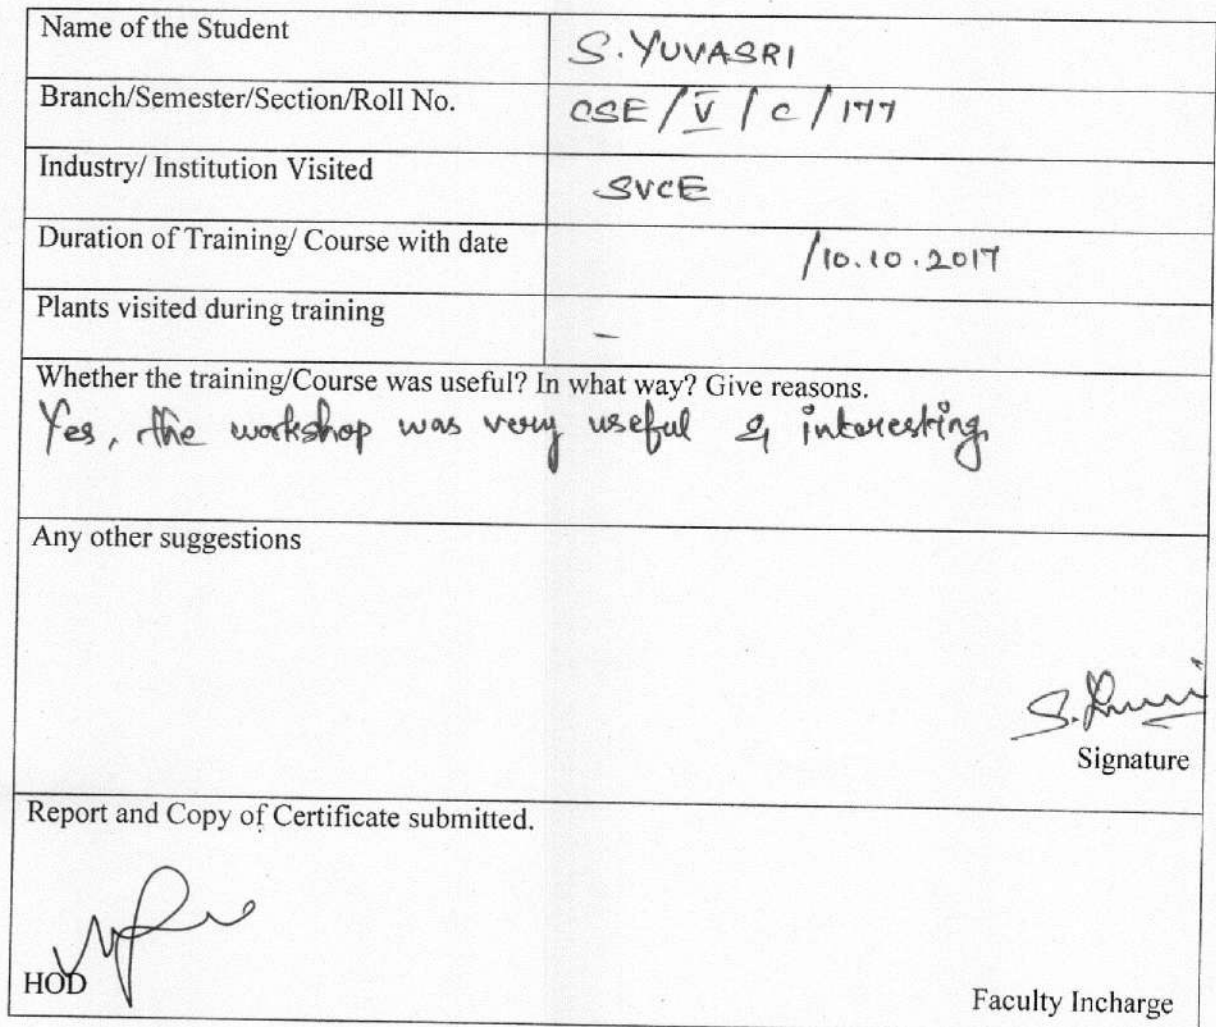 Name of the Student
S. YUVASRI
Branch/Semester/Section/Roll No.
CSE / V / C / 177
Industry/ Institution Visited
SVCE
Duration of Training/ Course with date
/10.10.2017
Plants visited during training
-
Whether the training/Course was useful? In what way? Give reasons.
Yes, the workshop was very useful & interesting.
Any other suggestions
Signature
Report and Copy of Certificate submitted.
HOD
Faculty Incharge